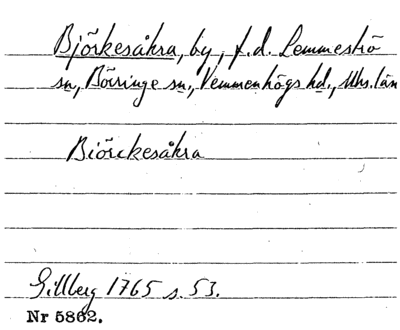 Björkesåkra, by, f.d. Lemmeströ
sn, Börringe sn, Vemmenhögs hd., Mhs. län
Biörckesåkra
Gillberg 1765 s. 53.
Nr 5862.